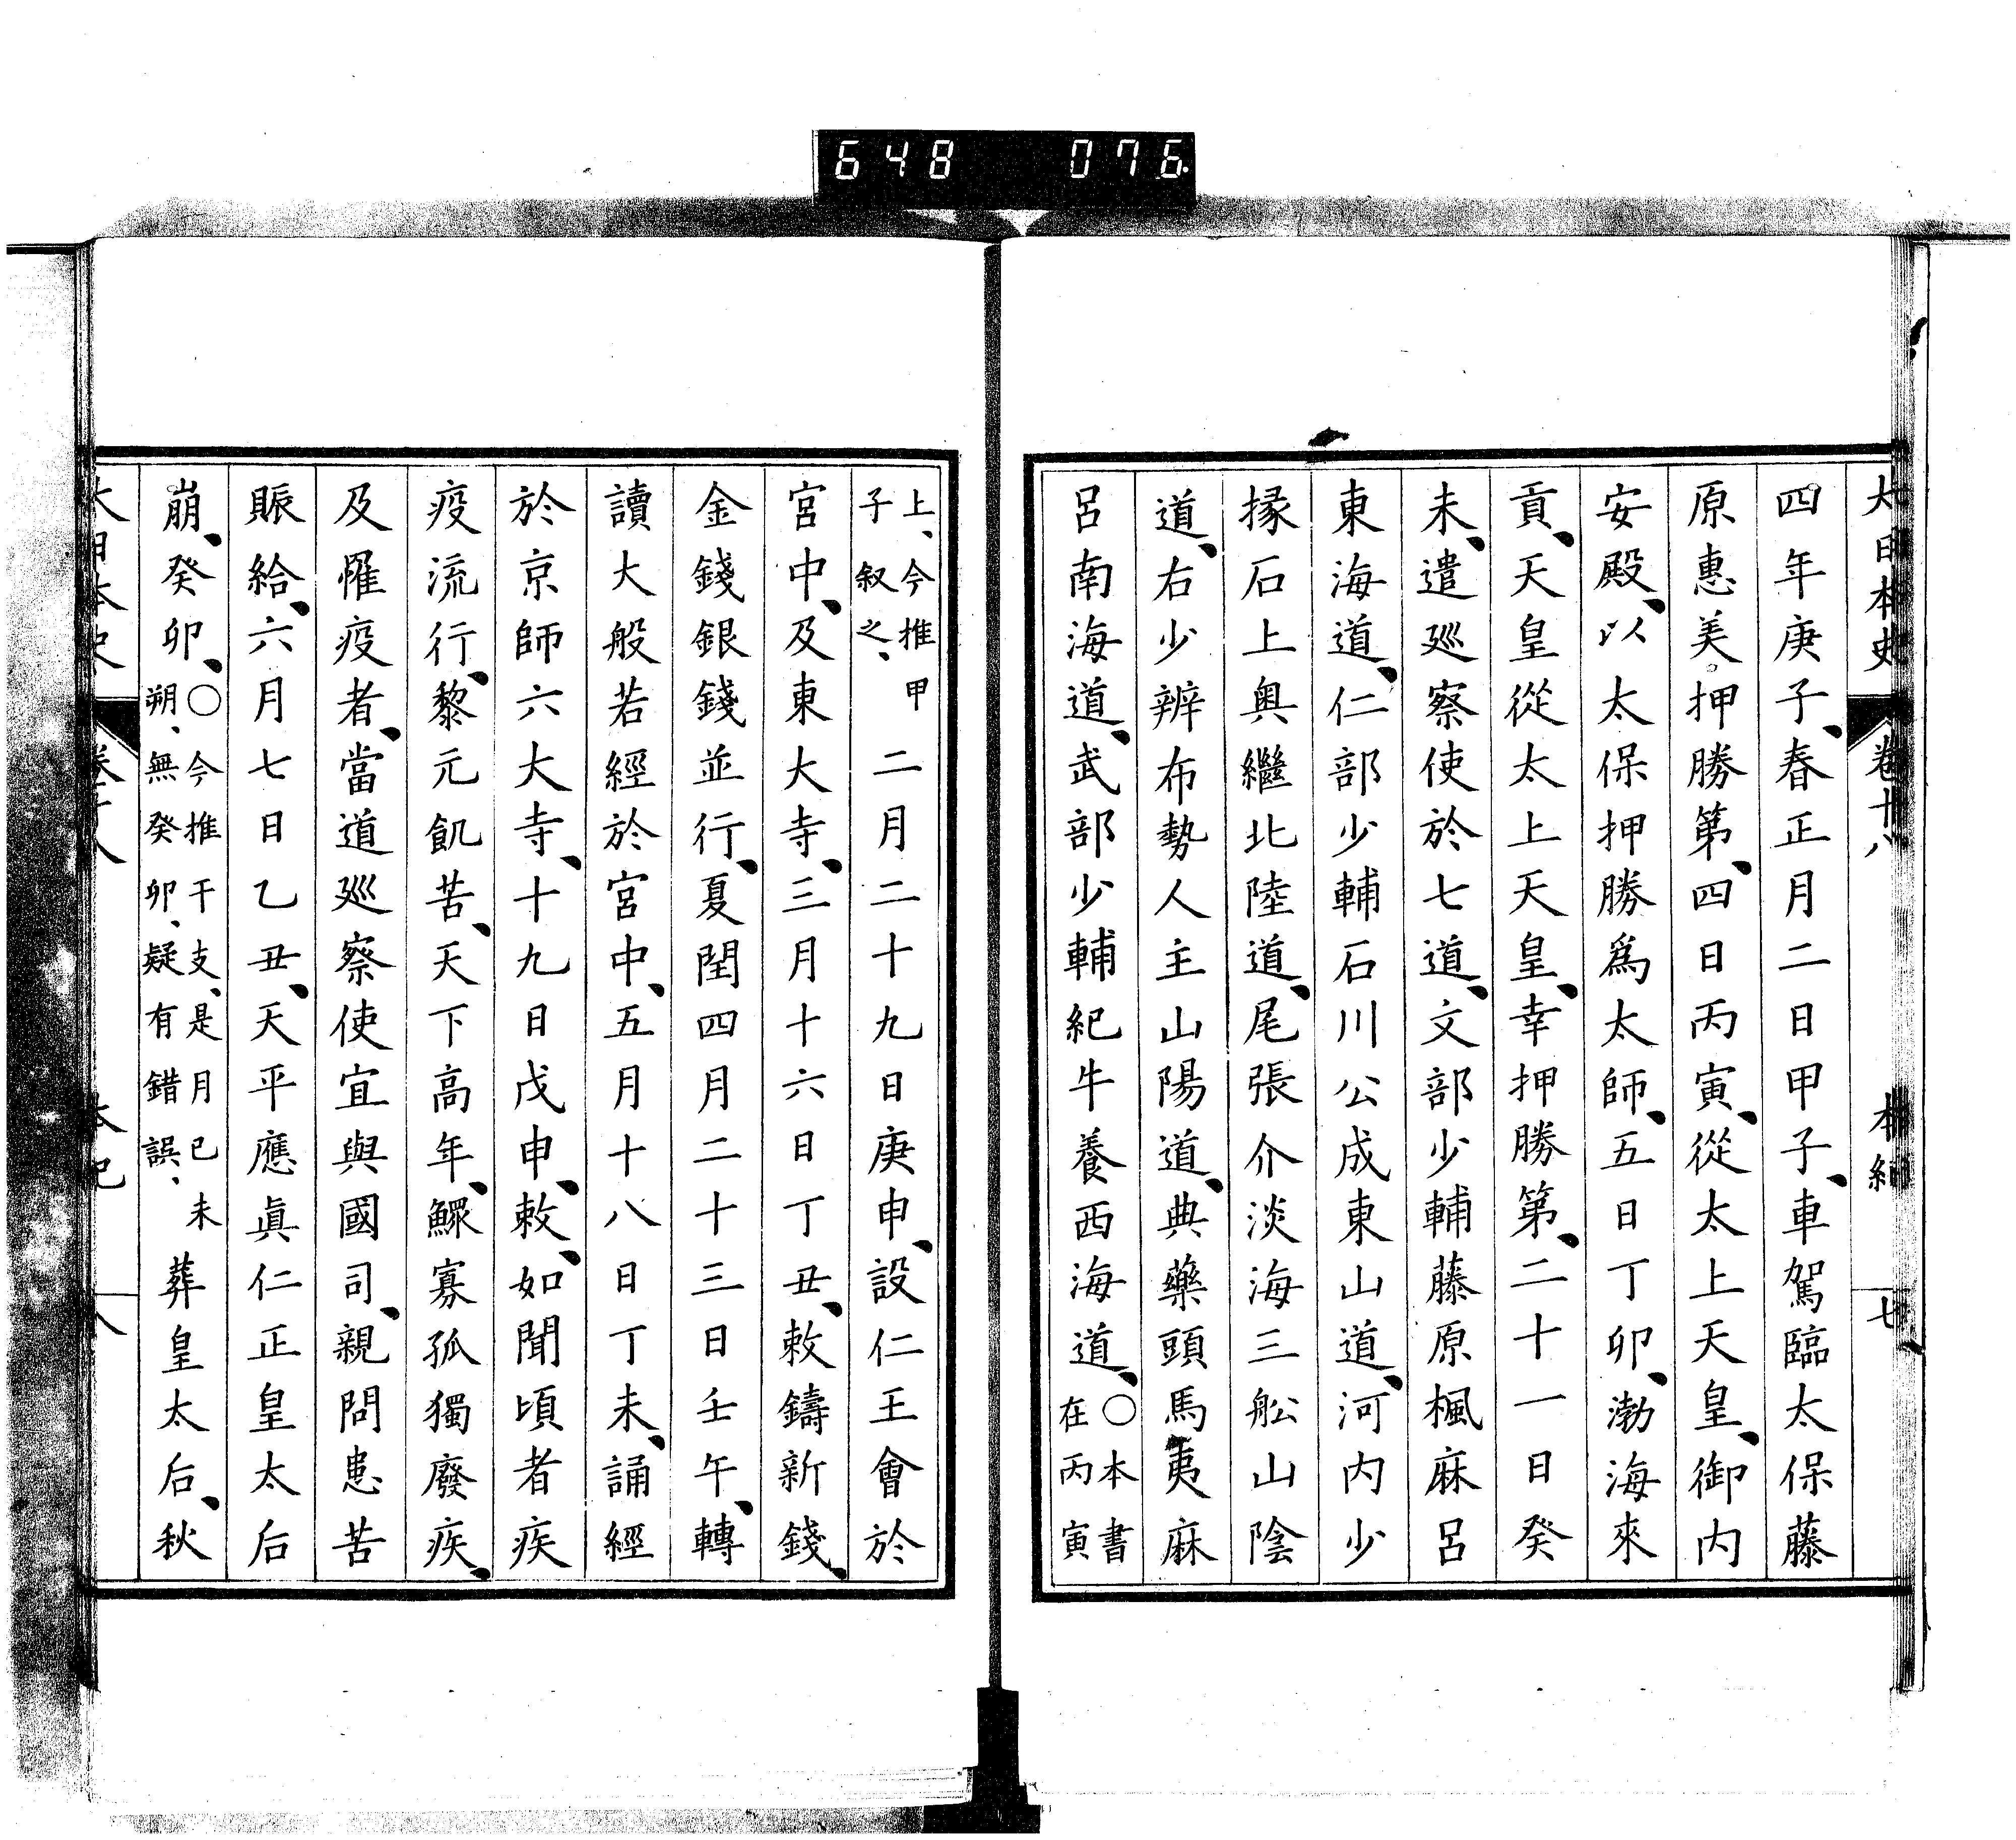 648 076
大日本史 卷十八 本紀 七
四年庚子、春正月二日甲子、車駕臨太保藤
原惠美押勝第、四日丙寅、從太上天皇、御内
安殿、以太保押勝爲太師、五日丁卯、渤海來
貢、天皇從太上天皇、幸押勝第、二十一日癸
未、遣廵察使於七道、文部少輔藤原楓麻呂
東海道、仁部少輔石川公成東山道、河内少
掾石上奧繼北陸道、尾張介淡海三舩山陰
道、右少辨布勢人主山陽道、典藥頭馬夷麻
呂南海道、武部少輔紀牛養西海道、○本書在丙寅
上、今推甲子叙之、二月二十九日庚申、設仁王會於
宮中、及東大寺、三月十六日丁丑、敕鑄新錢、
金錢銀錢並行、夏閏四月二十三日壬午、轉
讀大般若經於宮中、五月十八日丁未、誦經
於京師六大寺、十九日戊申、敕、如聞頃者疾
疫流行、黎元飢苦、天下高年、鰥寡孤獨廢疾、
及罹疫者、當道廵察使宜與國司、親問患苦
賑給、六月七日乙丑、天平應眞仁正皇太后
崩、癸卯、○今推干支、是月已未朔、無癸卯、疑有錯誤、葬皇太后、秋
大日本史 卷十八 本紀 八